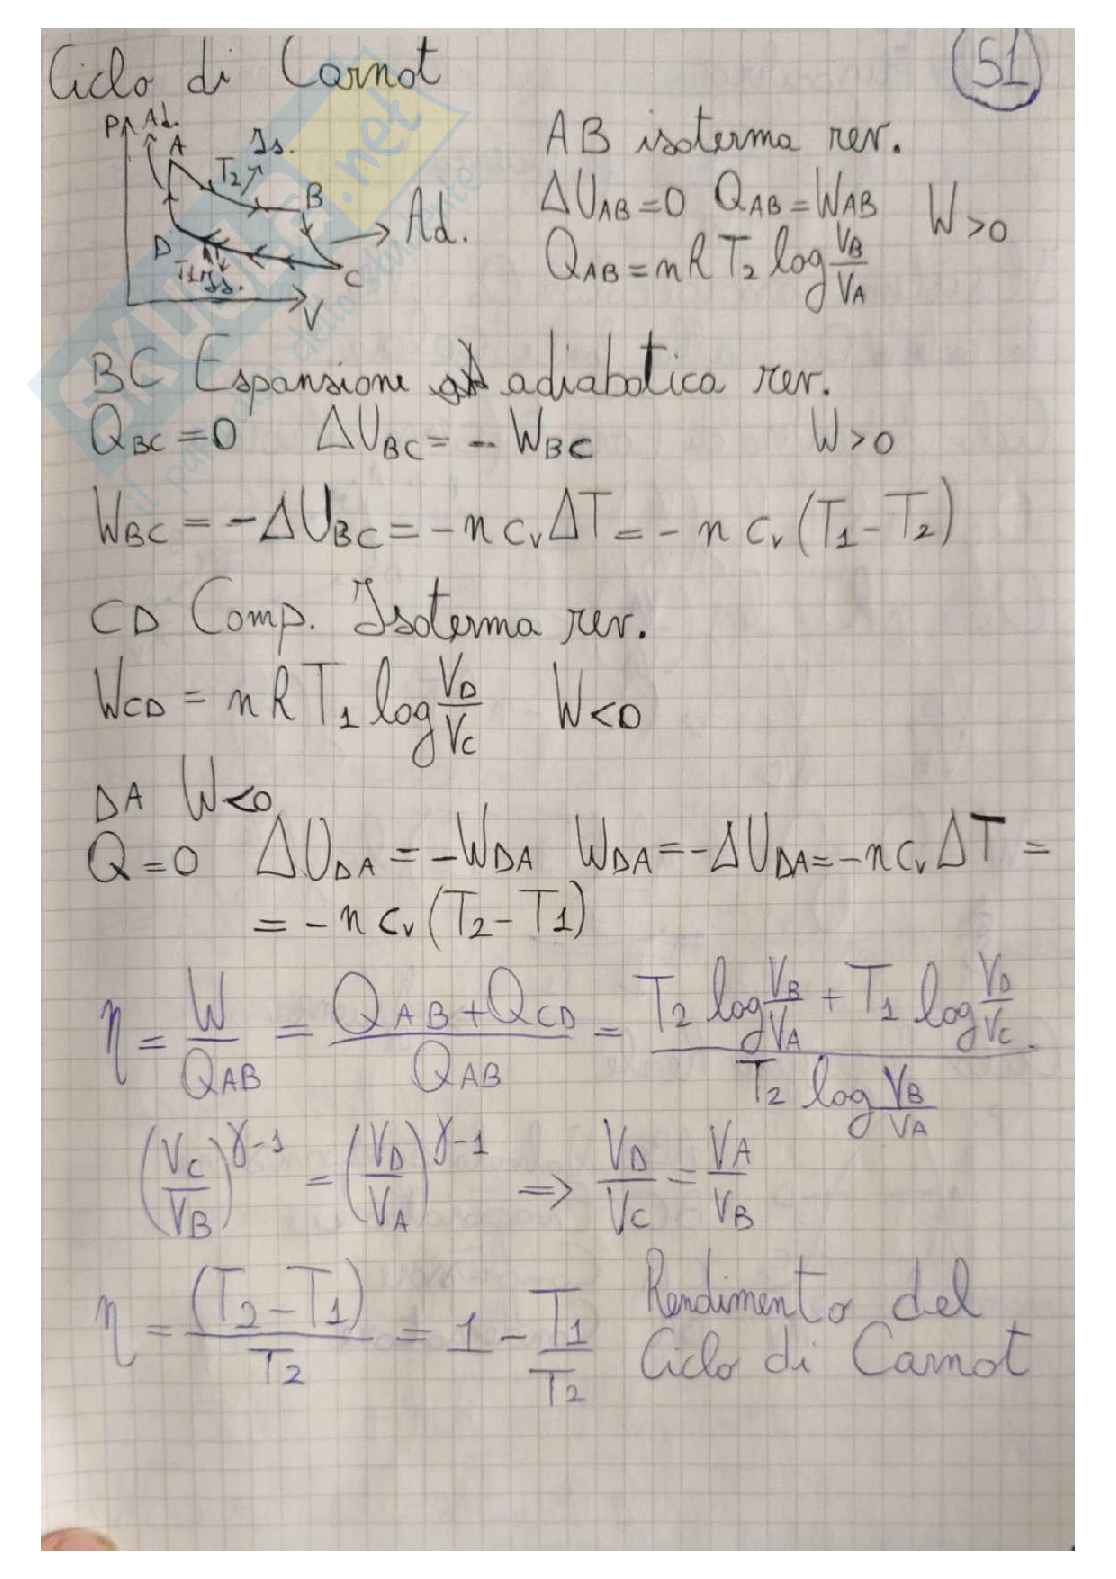 Ciclo di Carnot
51
P Ad.
A
Is.
T2
B
Ad.
D
T1 Is.
C
V
AB isoterma rev.
ΔU_AB = 0 Q_AB = W_AB W > 0
Q_AB = nRT2 log V_B/V_A
BC Espansione adiabatica rev.
Q_BC = 0 ΔU_BC = - W_BC W > 0
W_BC = -ΔU_BC = -n c_v ΔT = - n c_v (T1 - T2)
CD Comp. Isoterma rev.
W_CD = nRT1 log V_D/V_C W < 0
DA W < 0
Q = 0 ΔU_DA = -W_DA W_DA = -ΔU_DA = -n c_v ΔT =
= - n c_v (T2 - T1)
η = W/Q_AB = (Q_AB + Q_CD)/Q_AB = (T2 log V_B/V_A + T1 log V_D/V_C)/(T2 log V_B/V_A)
(V_C/V_B)^γ-1 = (V_D/V_A)^γ-1 ⇒ V_D/V_C = V_A/V_B
η = (T2 - T1)/T2 = 1 - T1/T2 Rendimento del
Ciclo di Carnot